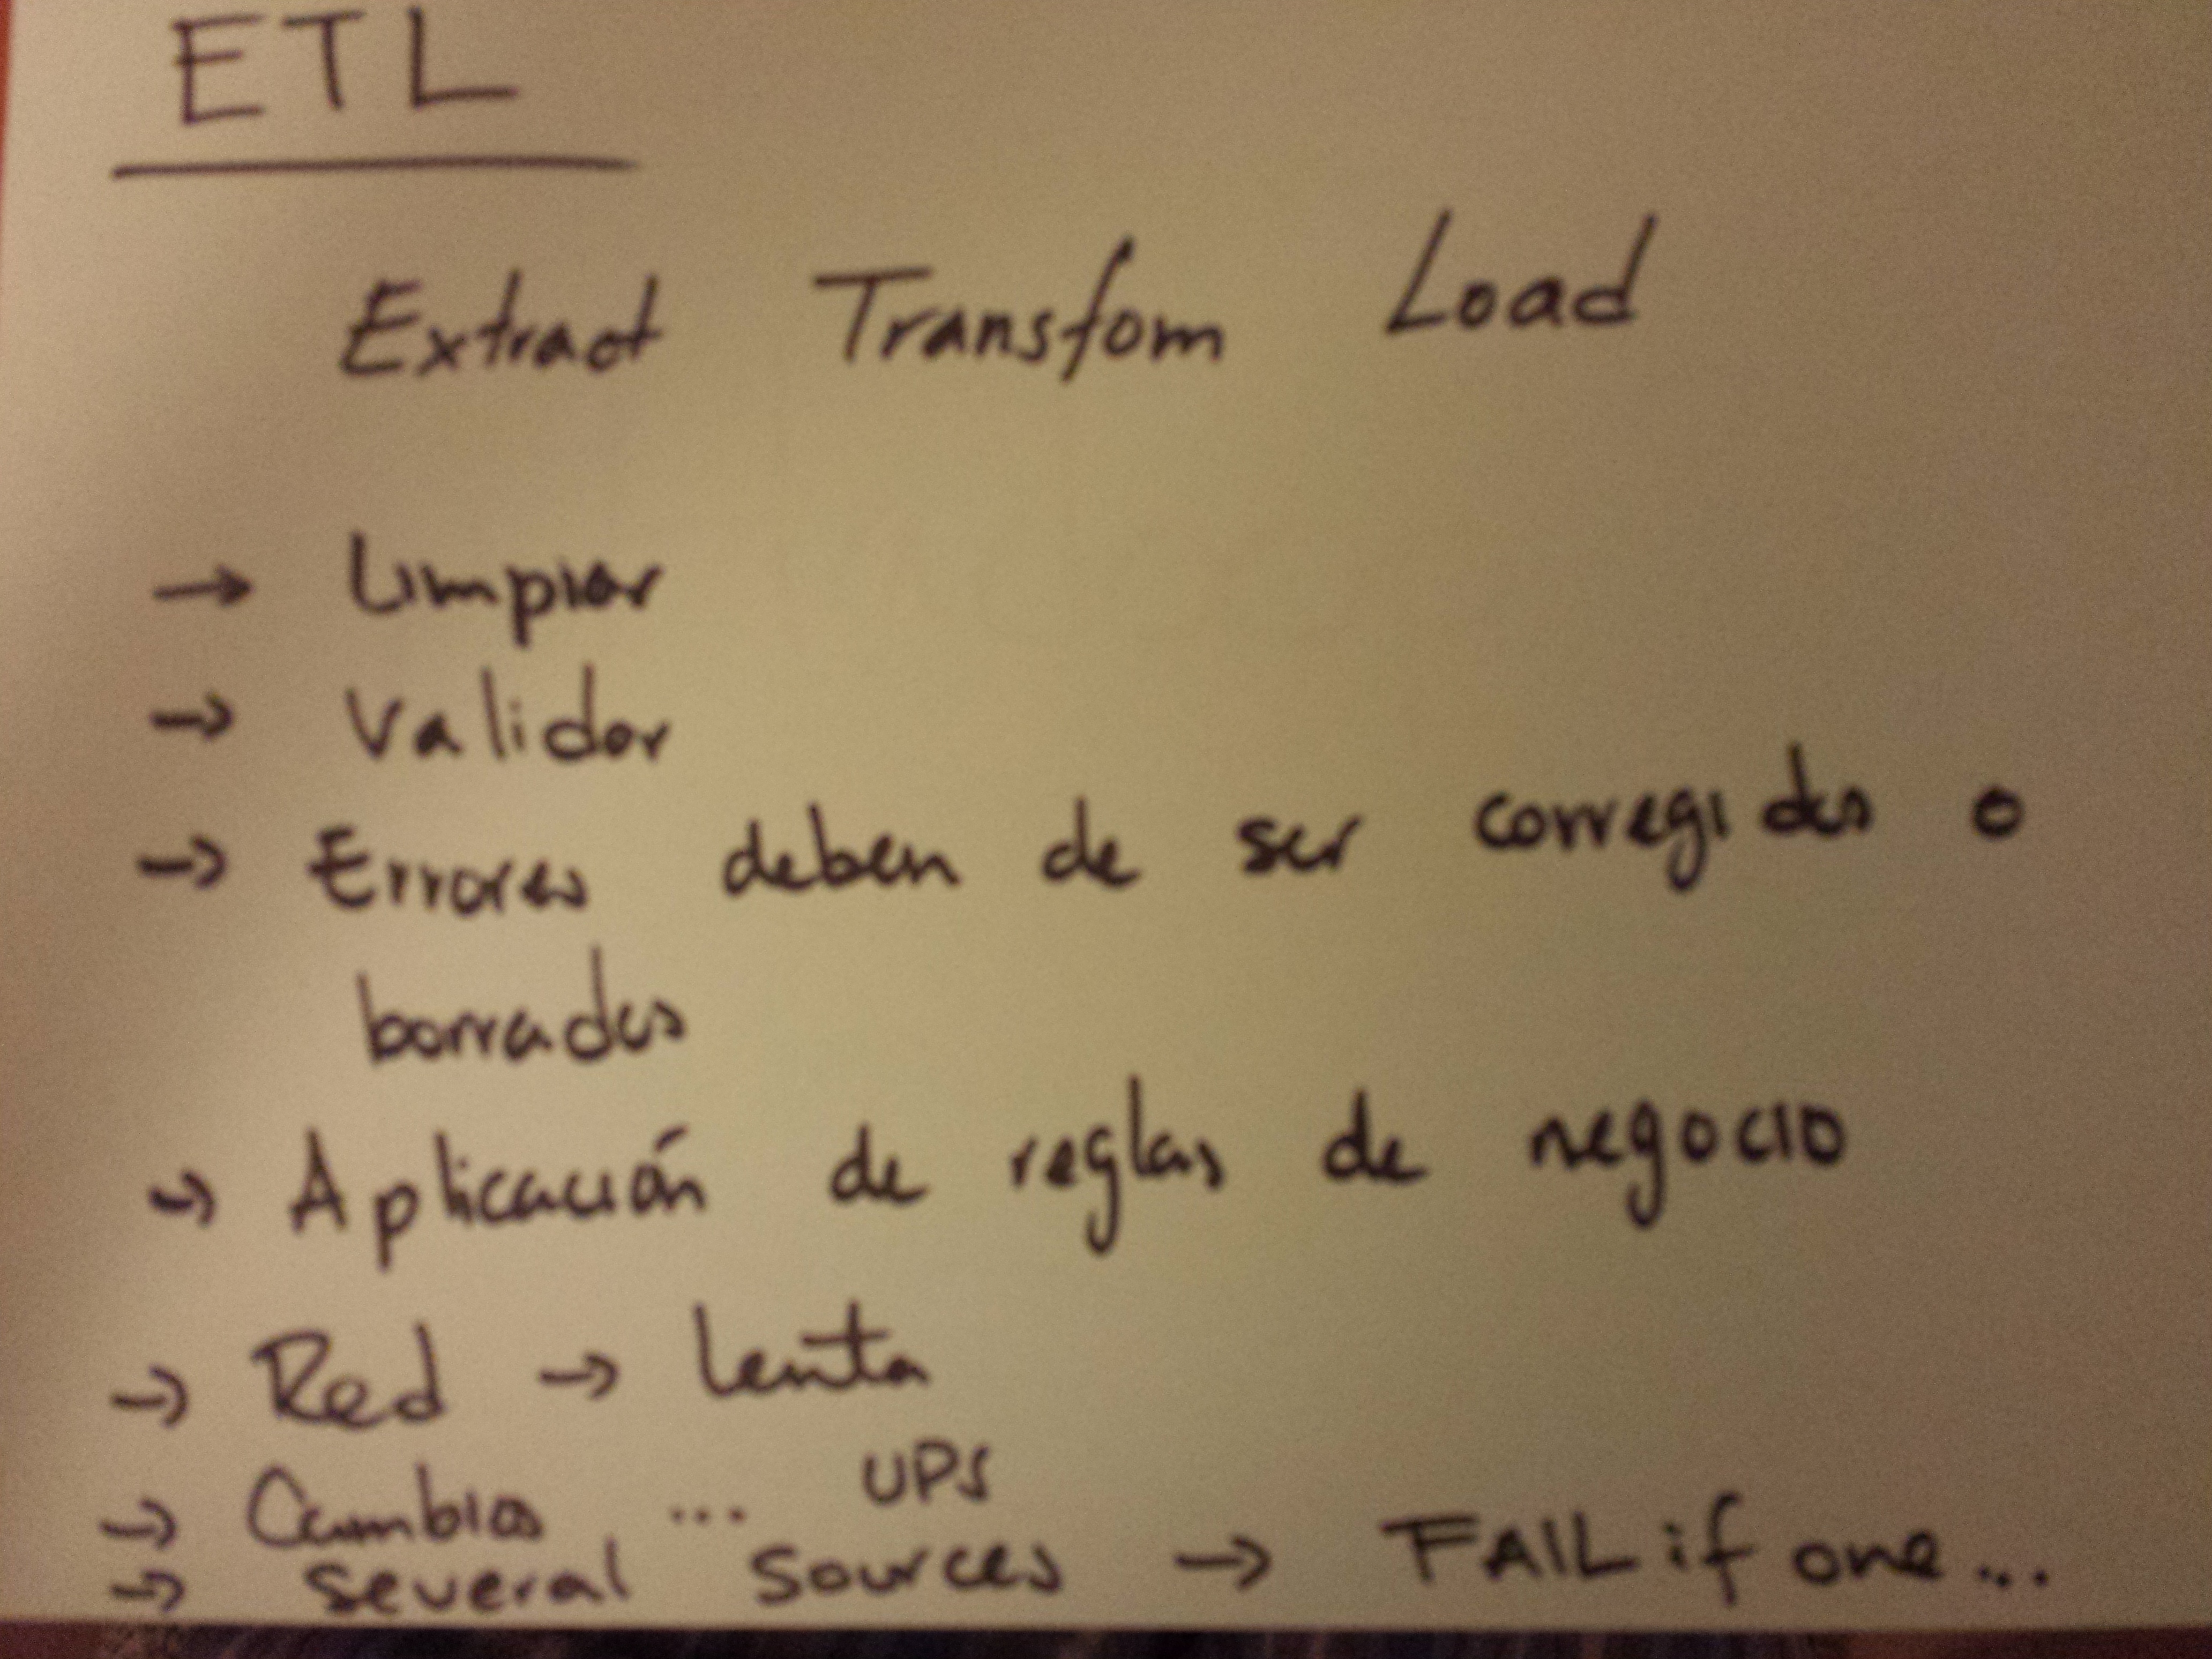 ETL
Extract Transfom Load
→ Limpiar
→ Validar
→ Errores deben de ser corregidos o
borrados
→ Aplicación de reglas de negocio
→ Red → lenta
→ Cambios ... UPS
→ several sources → FAIL if one...